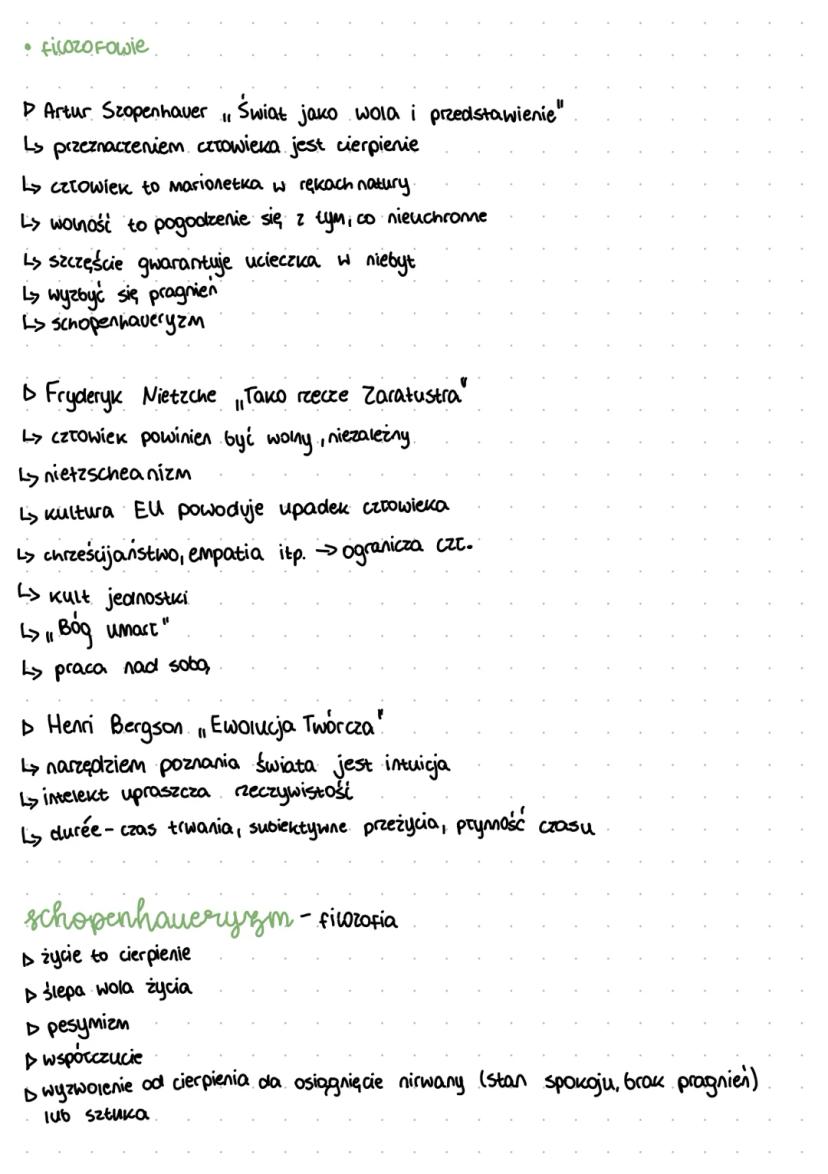 • filozofowie
▷ Artur Szopenhauer „Świat jako wola i przedstawienie"
↳ przeznaczeniem człowieka jest cierpienie
↳ człowiek to marionetka w rękach natury
↳ wolność to pogodzenie się z tym, co nieuchronne
↳ szczęście gwarantuje ucieczka w niebyt
↳ wyzbyć się pragnień
↳ schopenhaueryzm
▷ Fryderyk Nietzche „Tako rzecze Zaratustra"
↳ człowiek powinien być wolny, niezależny
↳ nietzscheanizm
↳ kultura EU powoduje upadek człowieka
↳ chrześcijaństwo, empatia itp. → ogranicza czł.
↳ kult jednostki
↳ „Bóg umarł"
↳ praca nad sobą
▷ Henri Bergson „Ewolucja Twórcza"
↳ narzędziem poznania świata jest intuicja
↳ intelekt upraszcza rzeczywistość
↳ durée - czas trwania, subiektywne przeżycia, płynność czasu
schopenhaueryzm - filozofia
▷ życie to cierpienie
▷ ślepa wola życia
▷ pesymizm
▷ współczucie
▷ wyzwolenie od cierpienia da osiągnięcie nirwany (stan spokoju, brak pragnień)
lub sztuka